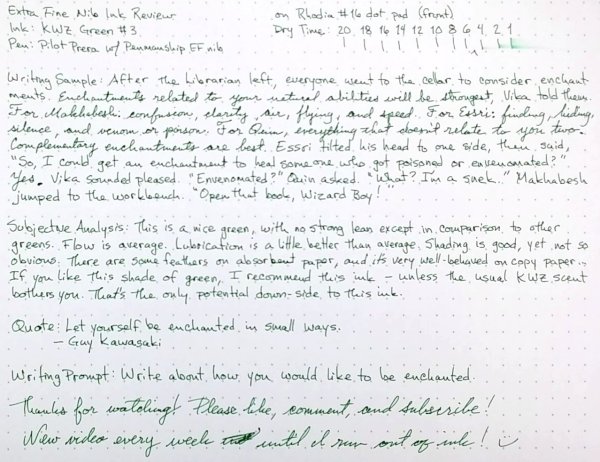 Extra Fine Nib Ink Review on Rhodia #16 dot pad (front)
Ink: KWZ Green #3 Dry Time: 20 18 16 14 12 10 8 6 4 2 1
Pen: Pilot Prera w/ Penmanship EF nib
Writing Sample: After the Librarian left, everyone went to the cellar to consider enchant
ments. Enchantments related to your natural abilities will be strongest, Vika told them.
For Makhabesh: confusion, clarity, air, flying, and speed. For Essri: finding, hiding,
silence, and venom or poison. For Quin, everything that doesn't relate to you two.
Complementary enchantments are best. Essri tilted his head to one side, then said,
"So, I could get an enchantment to heal someone who got poisoned or envenomated?"
Yes. Vika sounded pleased. "Envenomated?" Quin asked. "What? I'm a snek." Makhabesh
jumped to the workbench. "Open that book, Wizard Boy!"
Subjective Analysis: This is a nice green, with no strong lean except in comparison to other
greens. Flow is average. Lubrication is a little better than average. Shading is good, yet not so
obvious. There are some feathers on absorbent paper, and it's very well-behaved on copy paper.
If you like this shade of green, I recommend this ink - unless the usual KWZ scent
bothers you. That's the only potential down-side to this ink.
Quote: Let yourself be enchanted in small ways.
- Guy Kawasaki
Writing Prompt: Write about how you would like to be enchanted.
Thanks for watching! Please like, comment, and subscribe!
New video every week until I run out of ink! :)